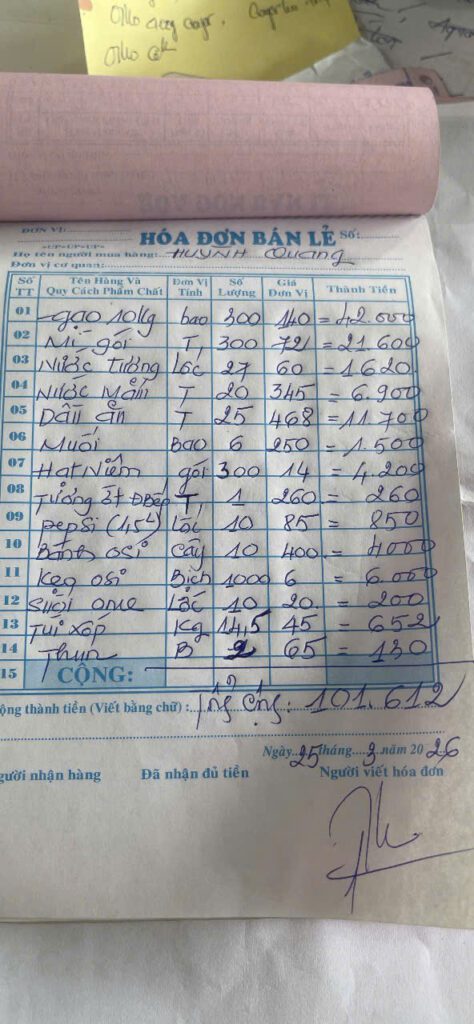 ĐƠN VỊ:
HÓA ĐƠN BÁN LẺ Số:
Họ tên người mua hàng: HUỲNH Quang
Đơn vị cơ quan:
Số TT Tên Hàng Và Quy Cách Phẩm Chất Đơn Vị Tính Số Lượng Giá Đơn Vị Thành Tiền
01 gạo 10kg bao 300 140 = 42.000
02 Mì gói T 300 72 = 21.600
03 Nước Tương Lốc 27 60 = 1.620
04 Nước Mắm T 20 345 = 6.900
05 Dầu ăn T 25 468 = 11.700
06 Muối Bao 6 250 = 1.500
07 Hạt Niêm gói 300 14 = 4.200
08 Tương ớt T 1 260 = 260
09 pepsi (1,5L) Lốc 10 85 = 850
10 Bánh osi Cây 10 400 = 4000
11 Kẹo osi Bịch 1000 6 = 6.000
12 Suối one Lốc 10 20 = 200
13 Túi xốp Kg 14,5 45 = 652
14 Thun B 2 65 = 130
15 CỘNG:
ộng thành tiền (Viết bằng chữ): Tổng Cộng: 101.612
Ngày 25 tháng 3 năm 20 26
gười nhận hàng Đã nhận đủ tiền Người viết hóa đơn